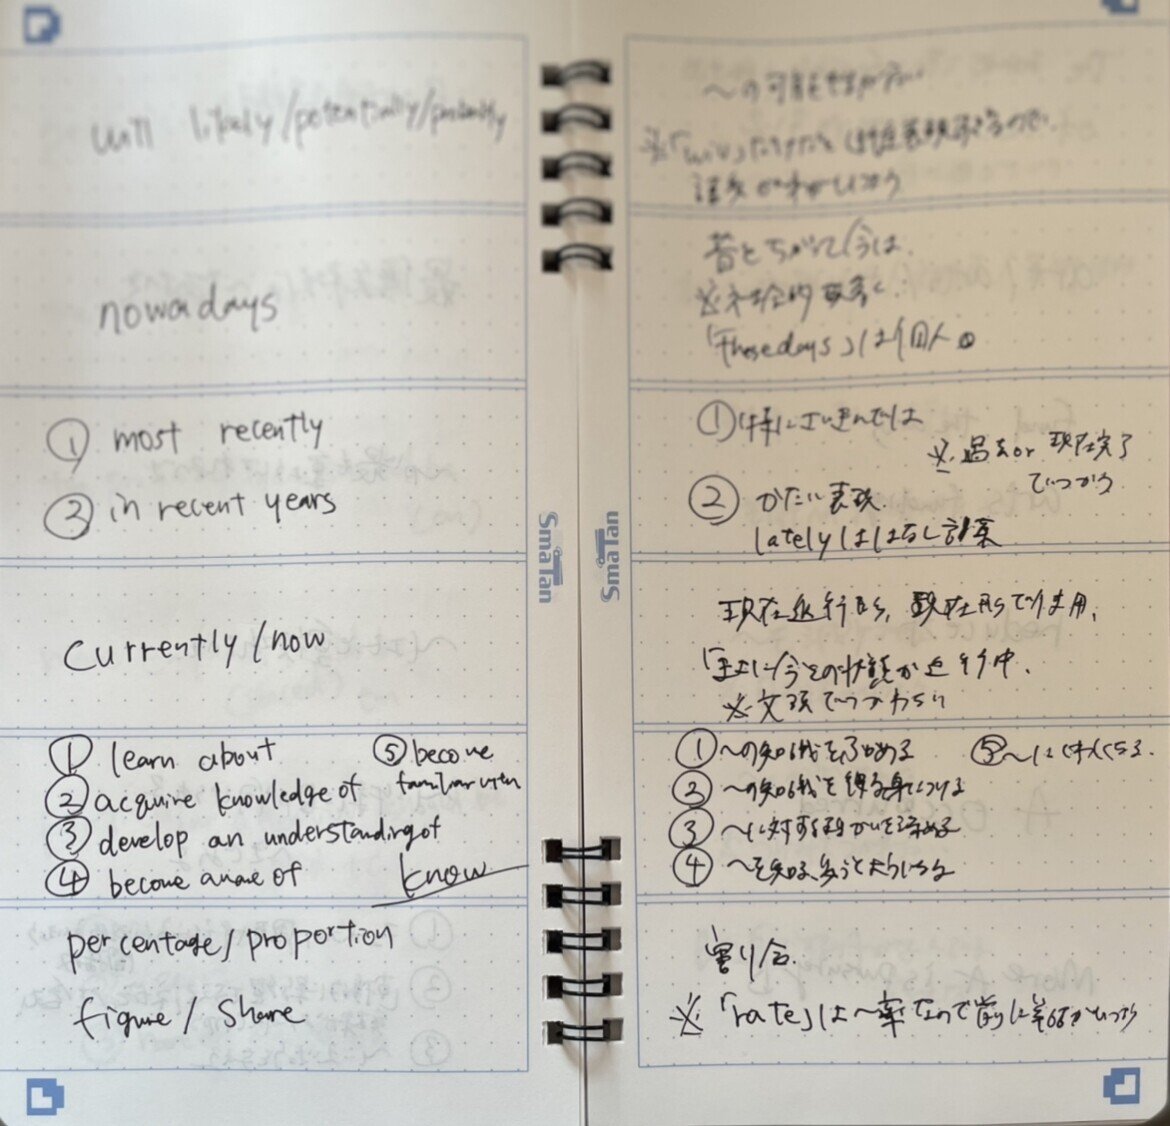 will likely/potentially/probably
nowadays
① most recently
② in recent years
currently/now
① learn about
⑤ become familiar with
② acquire knowledge of
③ develop an understanding of
④ become aware of
know
percentage/proportion
figure/share
SmaTan
SmaTan
〜の可能性が高い
※「will」だけだと
昔とちがって今は.
※社会的
「these days」は個人
①特にさいきんでは
※過去or現在完了
でつかう
②かたい表現.
latelyははなし言葉
現在進行形, 現在形で
「主に今その状態が進行中.
※文頭でつかわない
①〜の知識を深める
②〜の知識を得る身につける
③〜に対する理かいを深める
④〜を知る
⑤〜にくわしくなる.
割り合.
※「rate」は〜率なので前に